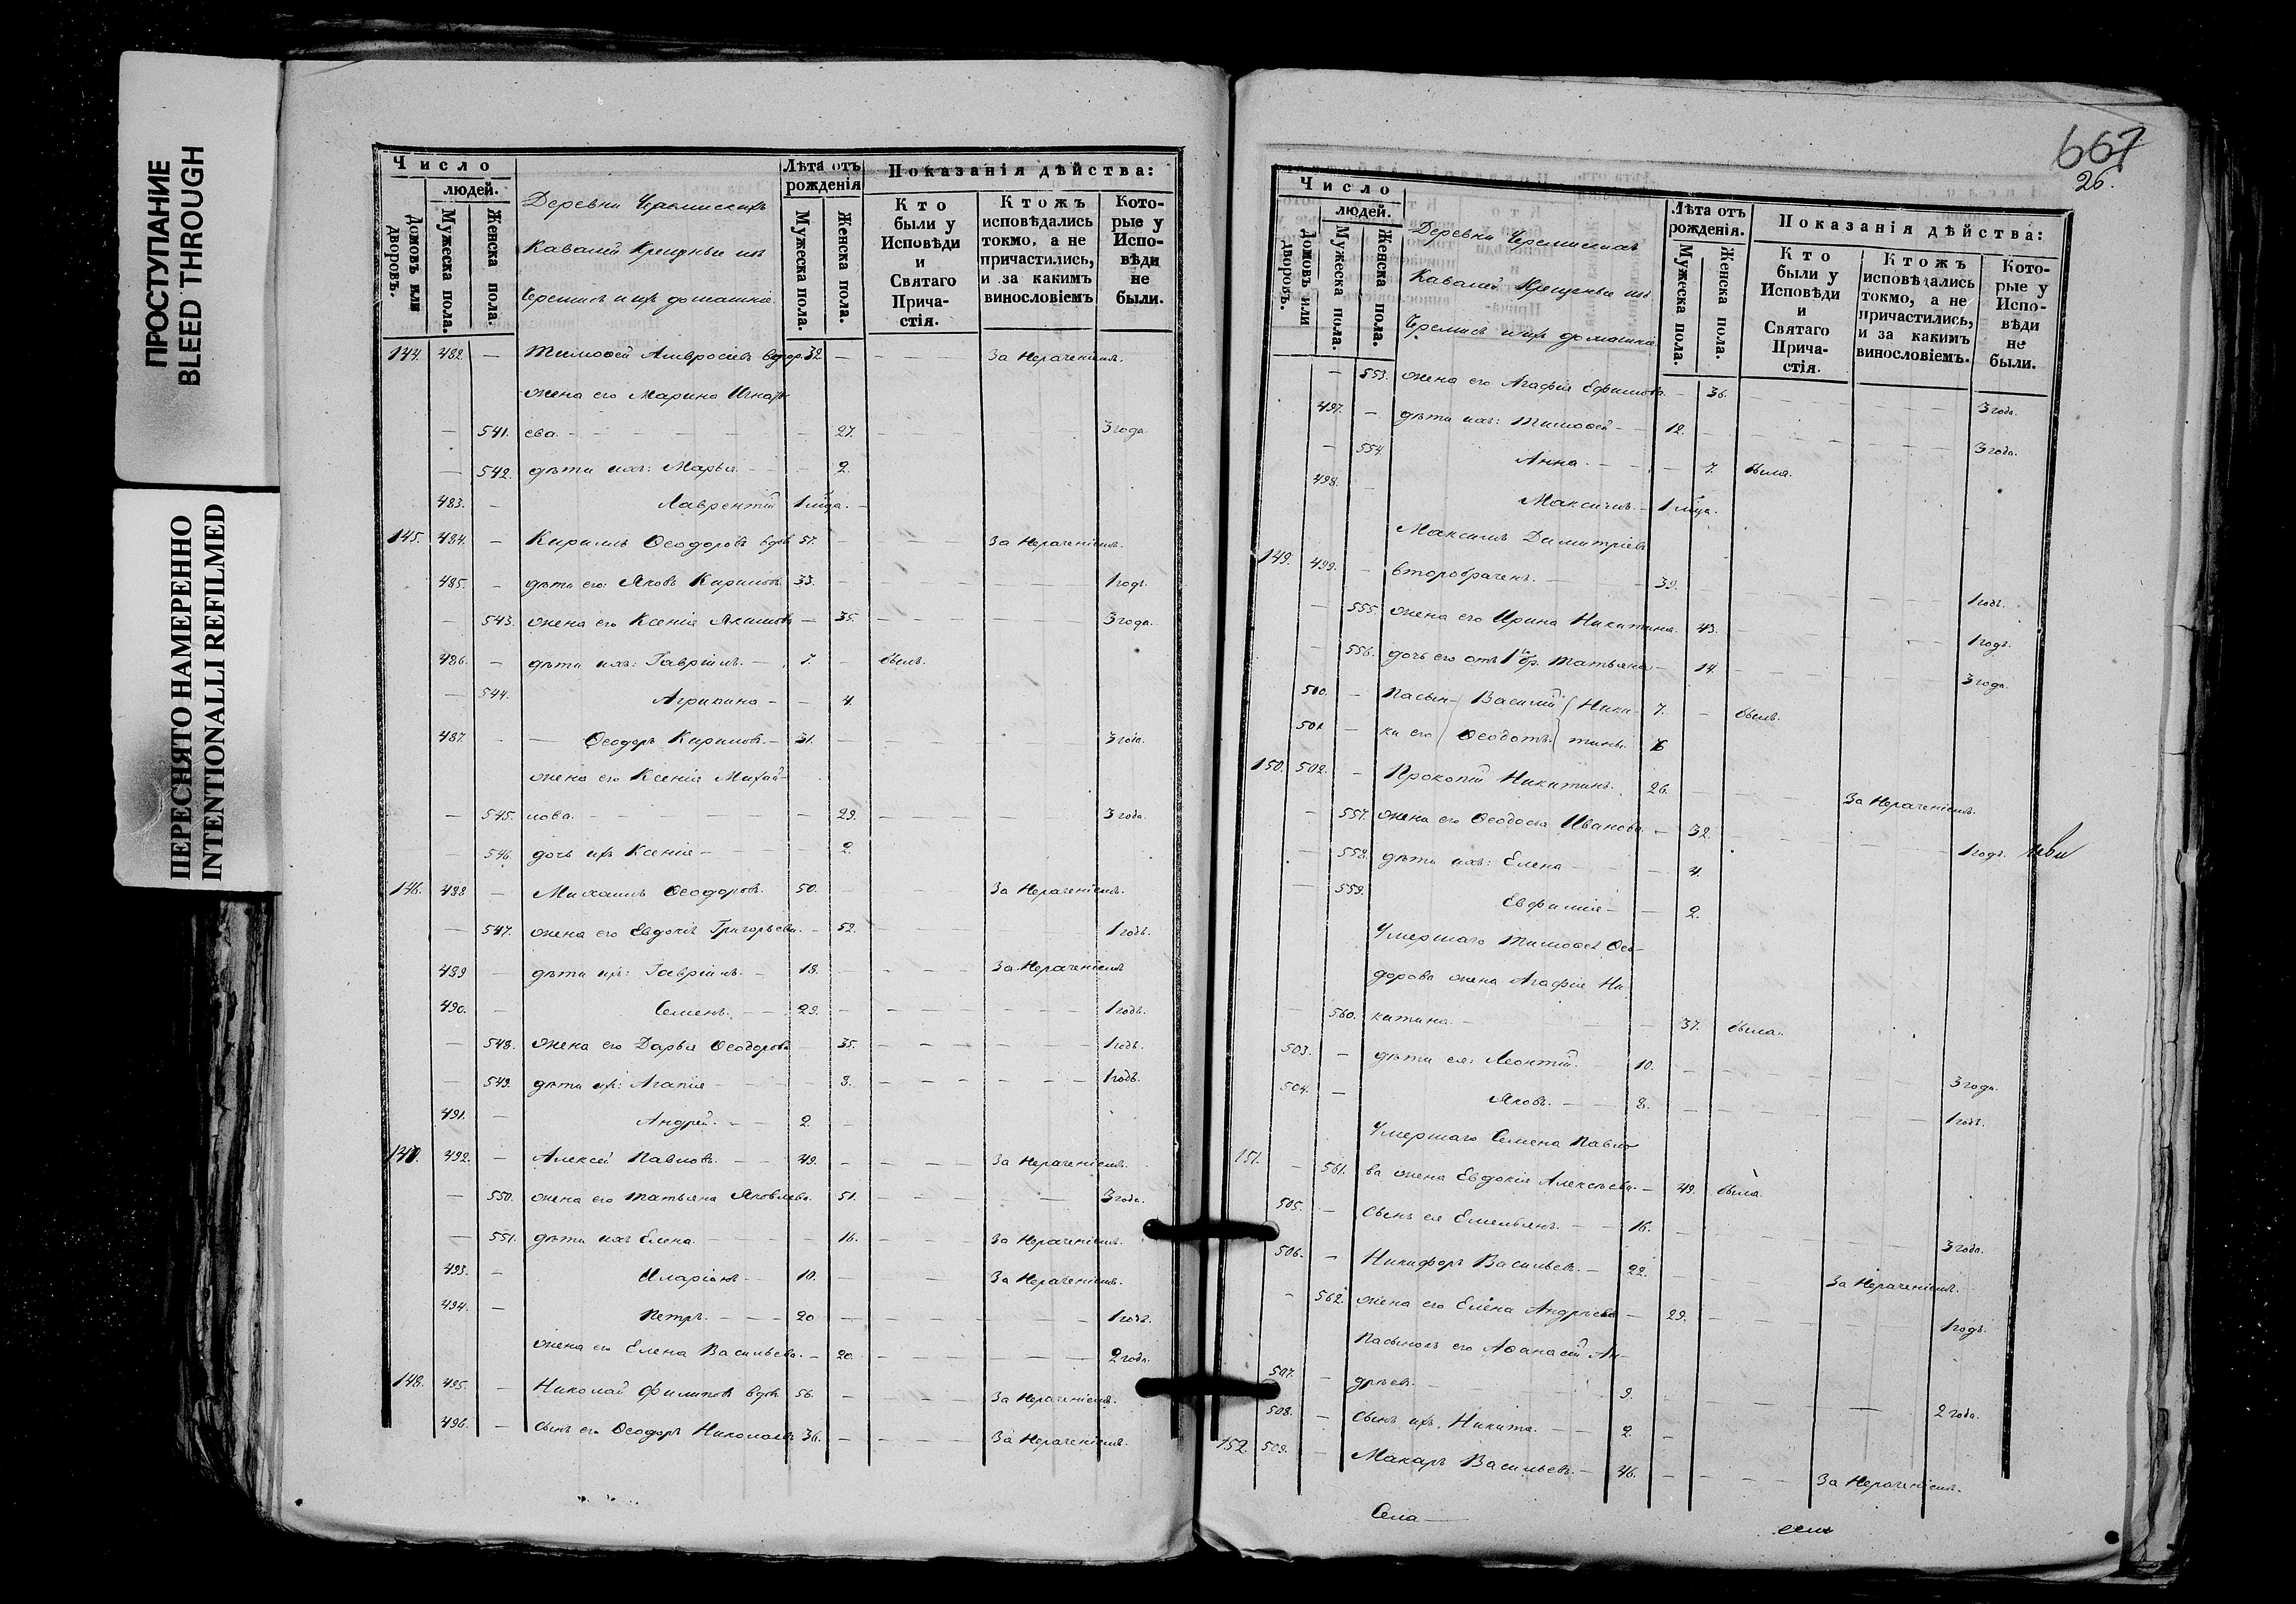 ПРОСТУПАНИЕ
BLEED THROUGH
ПЕРЕСНЯТО НАМЕРЕННО
INTENTIONALLI REFILMED
Число
людей.
Домовъ или дворовъ.
Мужеска пола.
Женска пола.
Деревни
Кавалей Крещены изъ
Черемисъ и ихъ домашніе
Лѣта отъ рожденія
Мужеска пола.
Женска пола.
Показанія дѣйства:
Кто были у Исповѣди и Святаго Прича-стія.
Ктожъ исповѣдались токмо, а не причастились, и за какимъ винословіемъ
Кото-рые у Испо-вѣди не были.
144. 482. — Тимоѳей Амвросіевъ вдор. 32 — За Нераченіемъ.
жена его Марина Игнать-
— 541. ева. — 27. 3 года
— 542. дѣти ихъ: Марья — 2.
483. — Лаврентій 1 мѣца. —
145. 484. — Кирилъ Ѳеодоровъ вдов 57. — За Нераченіемъ.
485. — дѣти его: Яковъ Кириловъ 33. — 1 годъ.
— 543. жена его Ксенія Якимова — 35. 3 года.
486. — дѣти ихъ: Гавріилъ. — 7. — былъ.
— 544. Агрипина — 4.
487. — Ѳеодоръ Кириловъ. — 31. — 3 года.
жена его Ксенія Михай-
— 545. лова. — 29. 3 года.
— 546. дочь ихъ Ксенія — 2.
146. 488 — Михаилъ Ѳеодоровъ. 50. — За Нераченіемъ.
— 547. жена его Евдокія Григорьева. — 52. 1 годъ.
489 — дѣти ихъ: Гавріилъ. — 18. — За Нераченіемъ
490. — Семенъ. — 29. — 1 годъ.
— 548. жена его Дарья Ѳеодорова — 35. — 1 годъ.
— 549. дѣти ихъ: Агапія — 8. — 1 годъ.
491. — Андрей. — 2 —
147. 492. — Алексей Павловъ. — 49. — За Нераченіемъ.
— 550. жена его Татьяна Яковлева. 51. — 3 года.
— 551. дѣти ихъ Елена. — 16. — За Нераченіемъ.
493. — Иларіонъ — 10. — За Нераченіемъ.
494. — Петръ. — 20 — 1 годъ.
жена его Елена Васильева. — 20. — 2 года.
148. 495. — Николай Филиповъ вдов 56. — За Нераченіемъ.
496. — сынъ его Ѳеодоръ Николаевъ 36. — За Нераченіемъ.
667
26.
Число
людей.
Домовъ или дворовъ.
Мужеска пола.
Женска пола.
Деревни
Кавалей Крещены изъ
Черемисъ и ихъ домашніе
Лѣта отъ рожденія.
Мужеска пола.
Женска пола.
Показанія дѣйства:
Кто были у Исповѣди и Святаго Прича-стія.
Ктожъ исповѣдались токмо, а не причастились, и за какимъ винословіемъ.
Кото-рые у Испо-вѣди не были.
— 553. жена его Агафія Ефимова — 36. — 3 года.
497. — дѣти ихъ: Тимоѳей — 12. — 3 года.
— 554. Анна. — 7. была.
498. — Максимъ. — 1 мѣца.
Максимъ Димитріевъ
149. 499. — второбраченъ. — 39. — 1 годъ.
— 555. жена его Ирина Никитина. 43. — 1 годъ.
— 556. дочь его отъ 1го бр. Татьяна — 14. — 3 года.
500. — Пасын- Василій Ники- 7. — былъ.
501. — ки его Ѳеодотъ. тины. 6
150. 502. — Прокопій Никитинъ. 26. — За Нераченіемъ.
— 557. жена его Ѳеодосья Иванова — 32. — 1 годъ.
— 558. дѣти ихъ: Елена — 4.
— 559. Евфимія — 2.
Умершаго Тимоѳея Ѳео-
дорова жена Агафія Ни-
— 560. китина. — 37. была.
503. — дѣти ея: Леонтій. — 10. — 3 года.
504. — Яковъ. — 8. — 1 годъ.
Умершаго Семена Павло-
151. — 561. ва жена Евдокія Алексѣева. — 49. была.
505. — сынъ ея Емельянъ. — 16. — 3 года.
506. — Никифоръ Васильевъ. — 22. — За Нераченіемъ.
— 562. жена его Елена Андрѣева — 29. — 1 годъ.
Пасынокъ его Аѳанасій Ан-
507. — дрѣевъ. — 9. — 2 года.
508. — сынъ ихъ. Никита. — 2. —
152. 509. — Макаръ Васильевъ. — 46. — За Нераченіемъ.
Села —